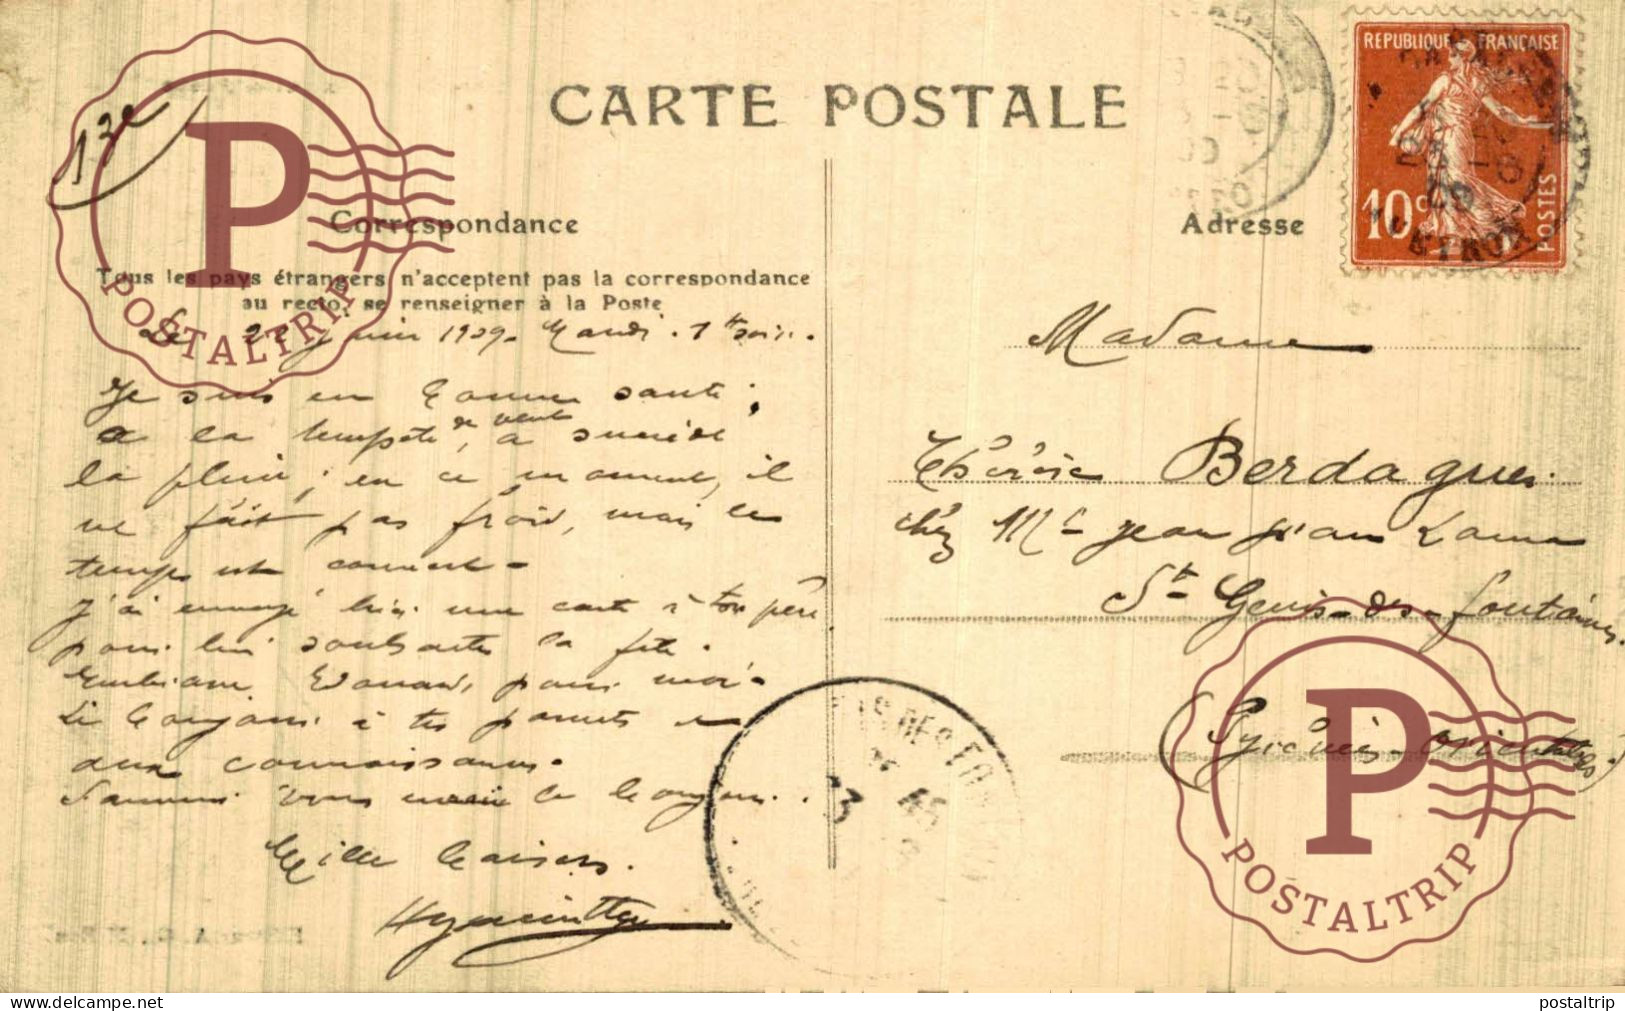 CARTE POSTALE
13e
Correspondance
Adresse
Tous les pays étrangers n'acceptent pas la correspondance
au recto, se renseigner à la Poste
REPUBLIQUE FRANÇAISE
10c
POSTES
Le 22 juin 1909. Mardi. 1h soir.
Je suis en bonne santé;
a la tempête de vent, a succédé
la pluie; en ce moment, il
ne fait pas froid, mais le
temps est couvert.
J'ai envoyé hier une carte à ton père
pour lui souhaiter la fête.
Embrasse Edouard, pour moi.
Le bonjour à tes parents et
aux connaissances.
vous le bonjour.
Mille baisers.
Hyacinthe
Madame
Thérèse Berdagues
chez Mr Jean
St Genis-des-fontaines
(Pyrénées-orientales)
POSTALTRIP
POSTALTRIP
postaltrip